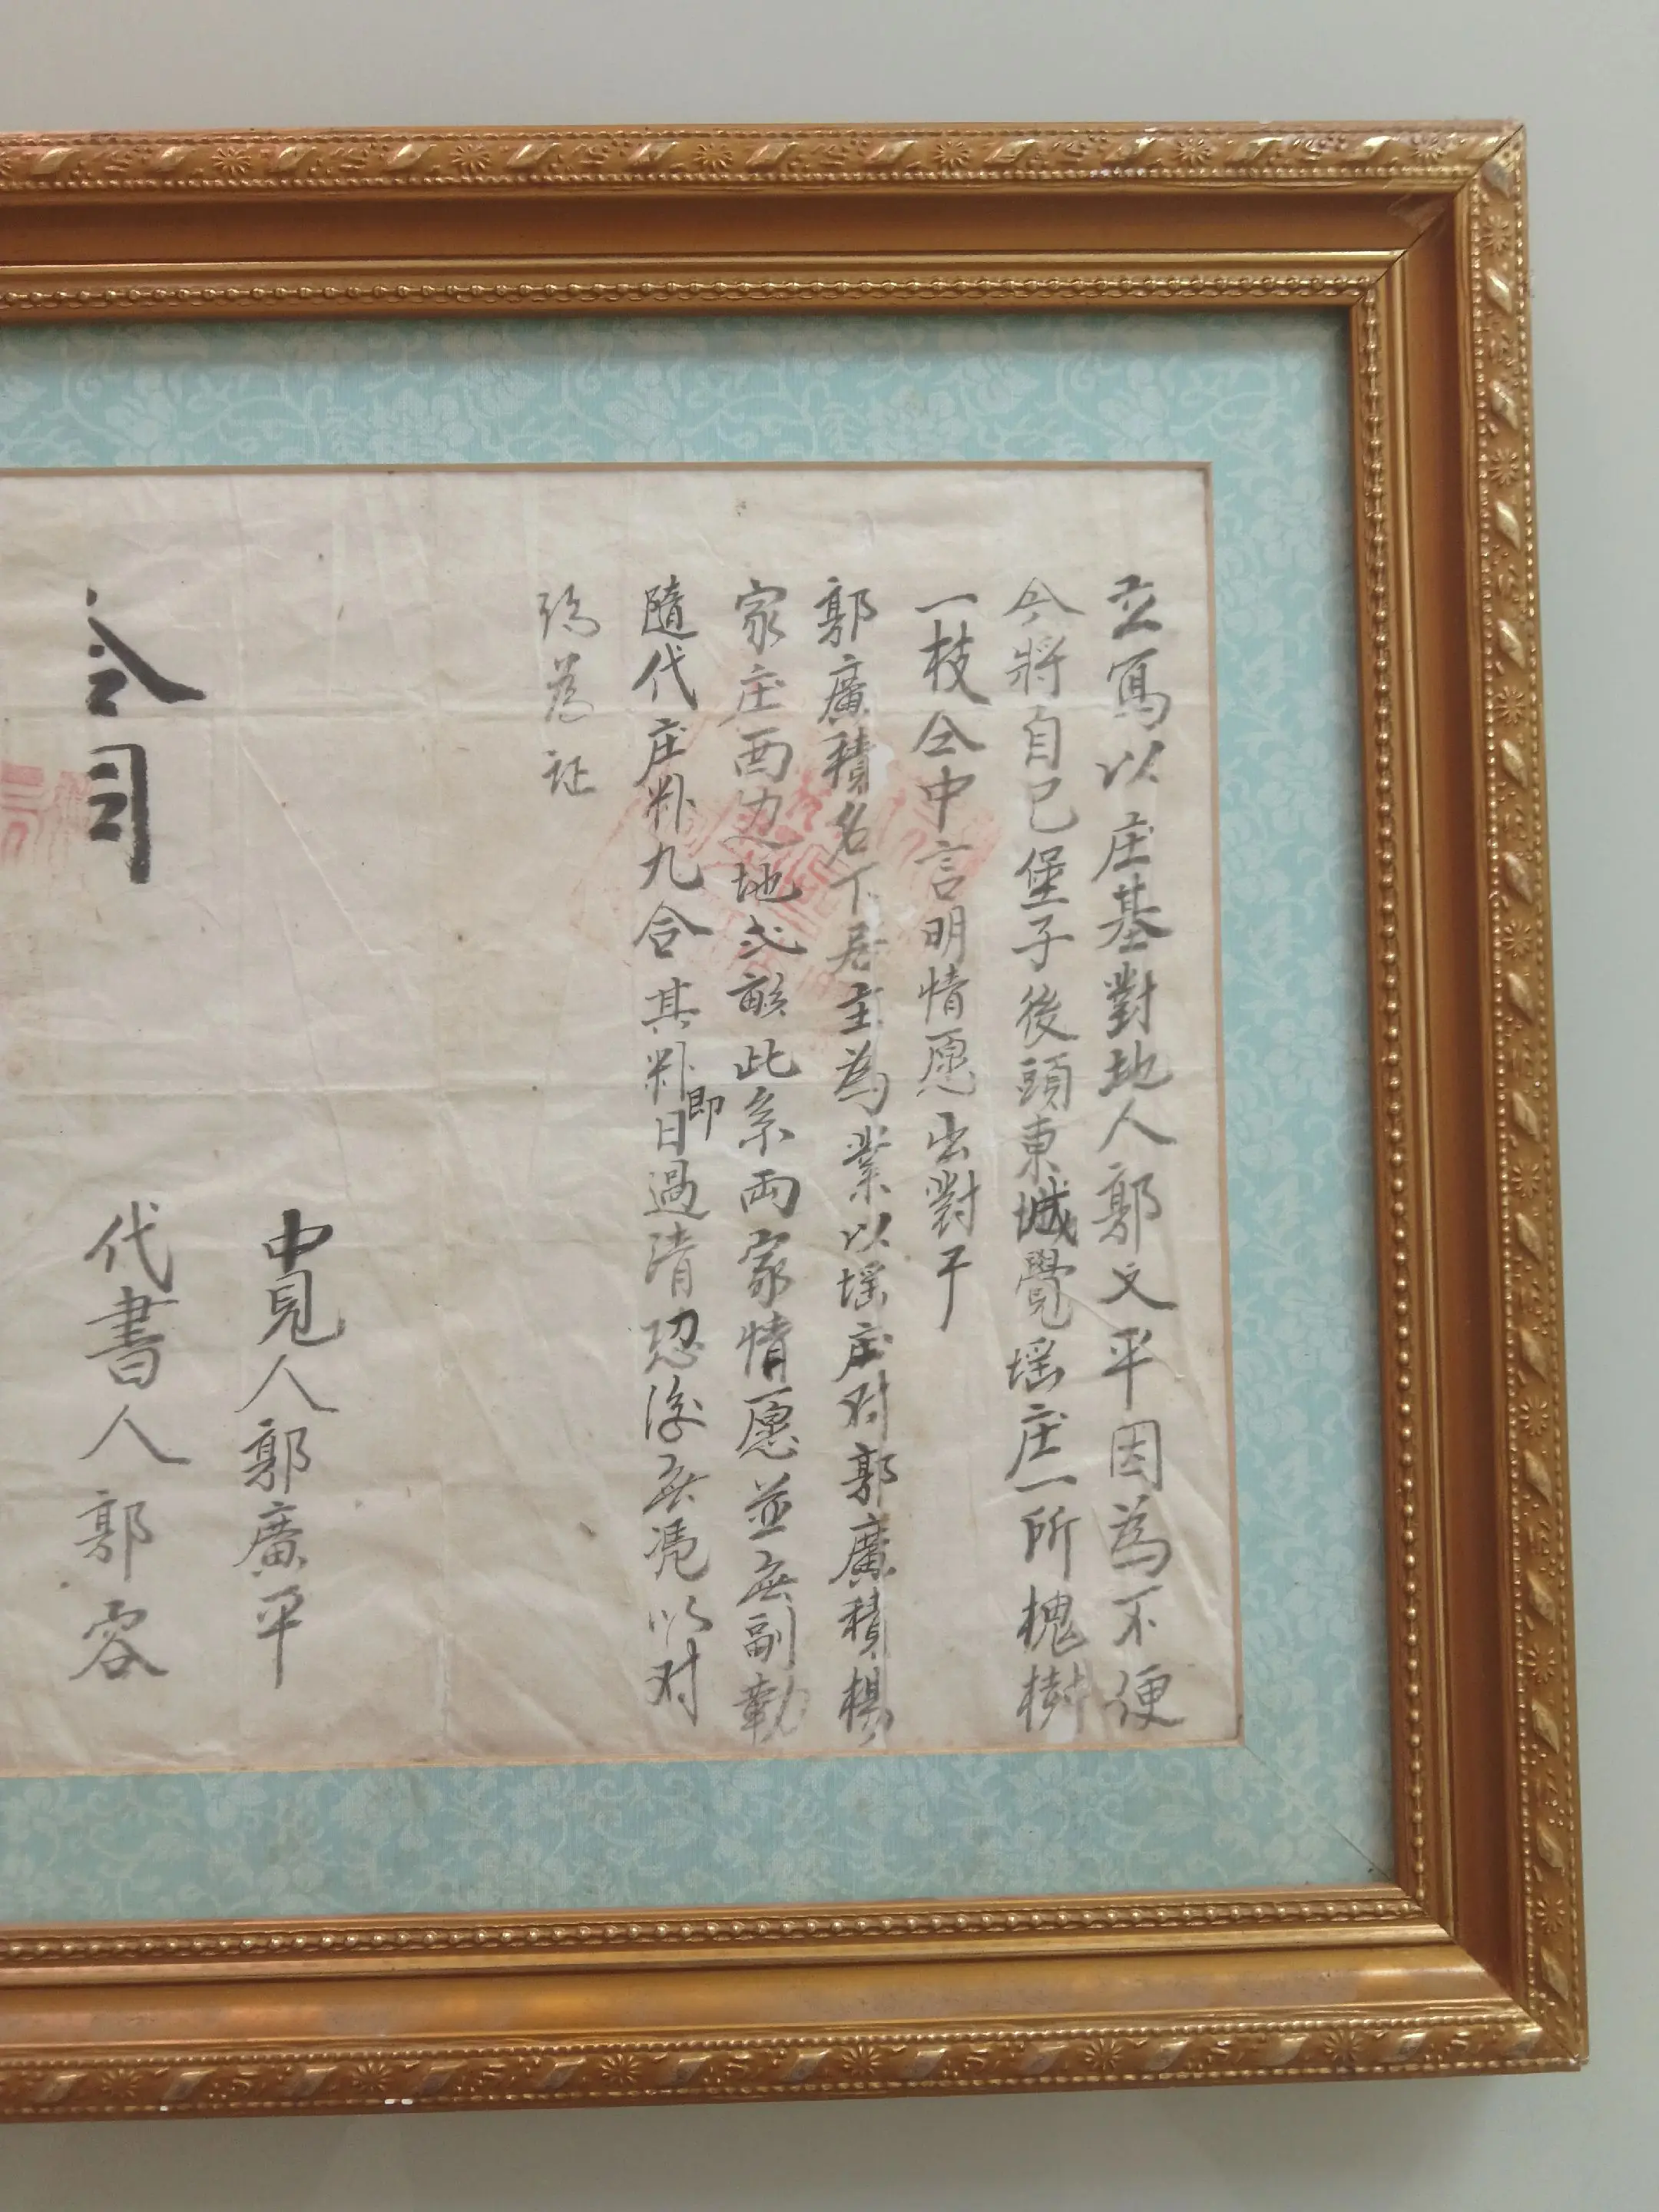 立寫以庄基對地人郭文平因為不便
今將自己堡子後頭東城覺墕庄一所槐樹
一枝仝中言明情愿出對于
郭廣積名下居主為業以墕庄对郭廣積楊
家庄西边地弍畝此系両家情愿並無副勒
隨代庄粮九合其粮即日過清恐後無凴以对
約為证
中見人郭廣平
代書人郭容
仝司